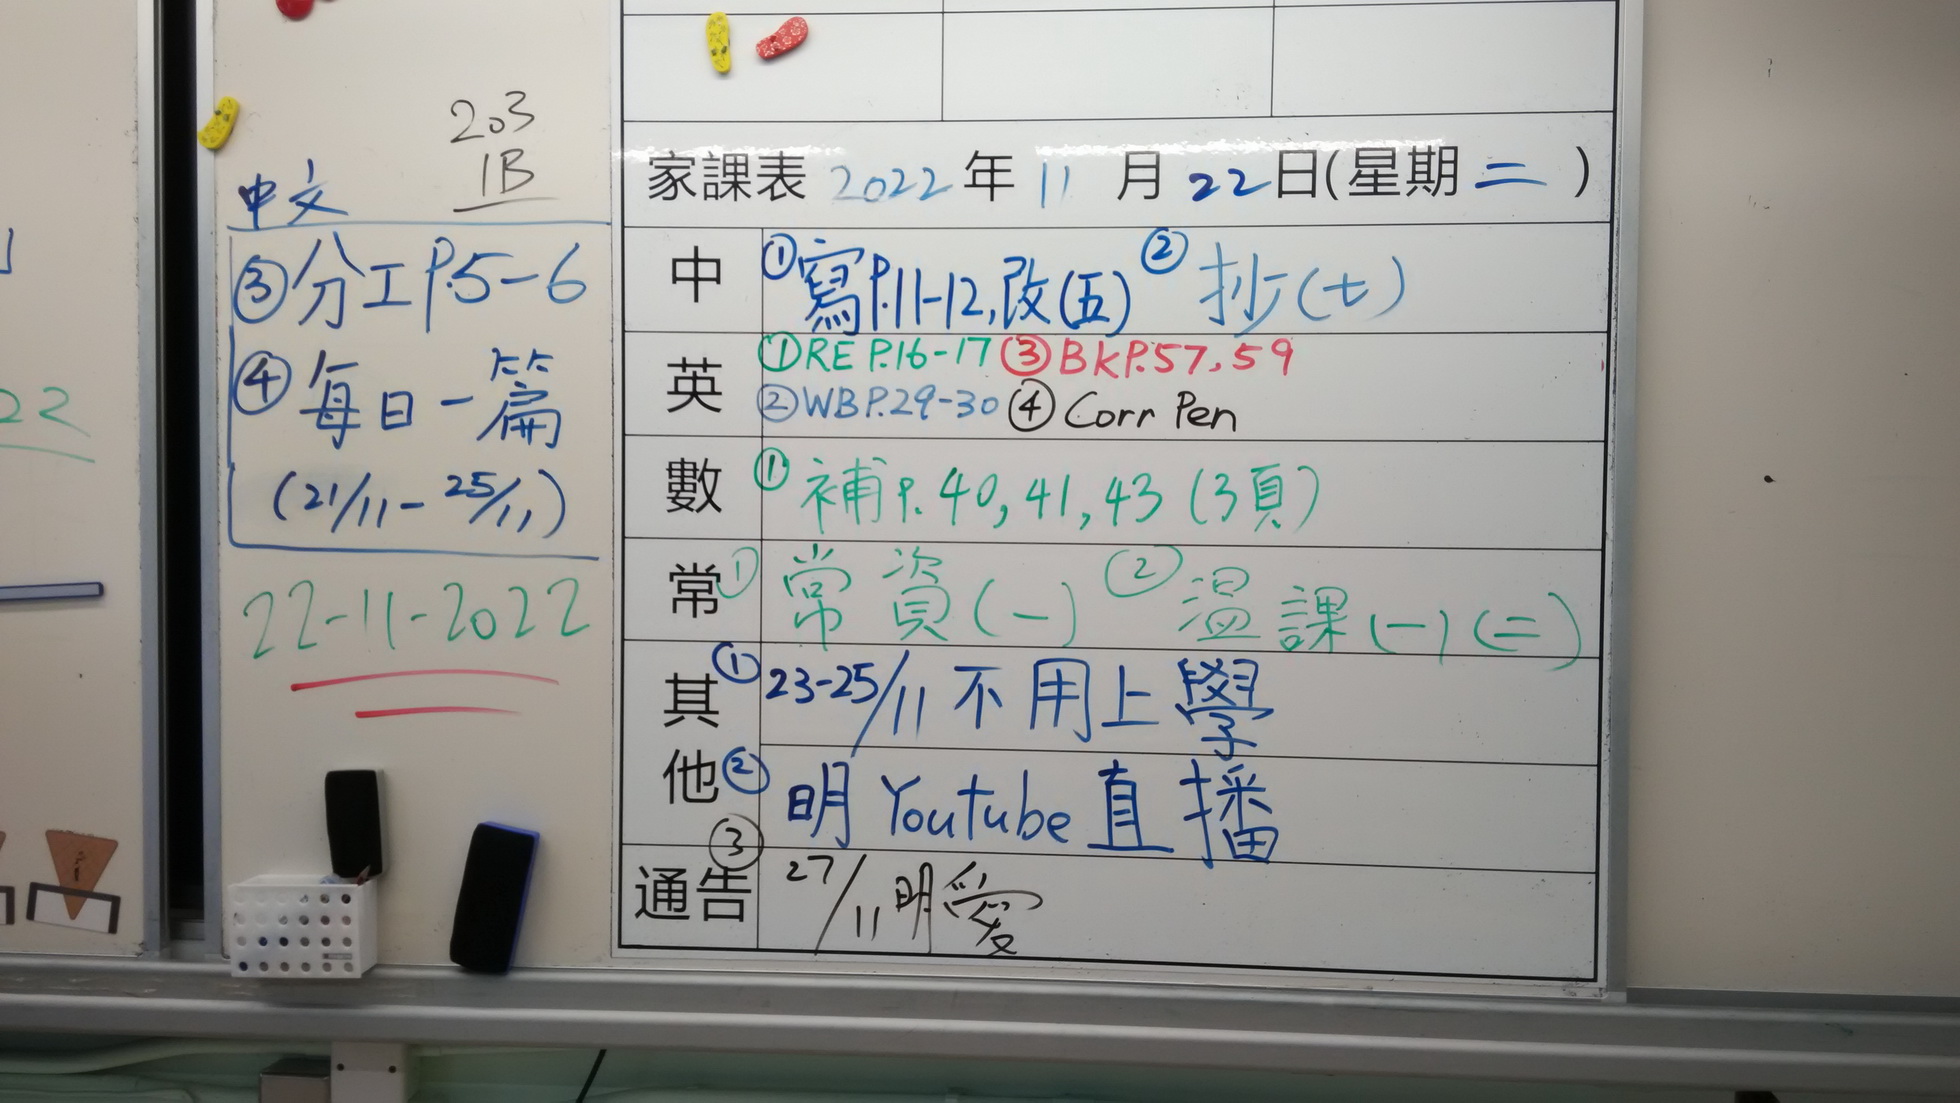 203
1B
中文
③分工P.5-6
④每日一篇
(21/11-25/11)
22-11-2022
22
家課表 2022年11月22日(星期二)
中 ①寫P.11-12,改(五) ②抄(七)
英 ①RE P.16-17 ③BK P.57,59
②WB P.29-30 ④Corr Pen
數 ①補P.40,41,43(3頁)
常 ①常資(一) ②溫課(一)(二)
其他 ①23-25/11不用上學
②明Youtube直播
通告 ③27/11明愛